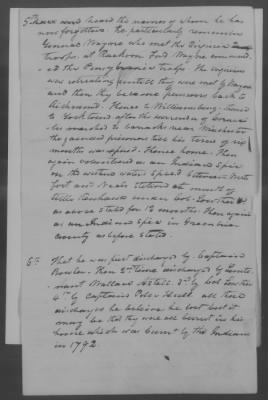 5th have heard the names of whom he has
now forgotten. He particularly remembers
General Wayne who met the Virginia
troops at Rackoon Ford Wayne command
ed the Pennsylvania troops. The Virginians
was retreating untill they was met by Wayne
and then they became pursuers back to
Richmond. thence to Williamsburg. thence
to York town after the surrender of Cornwa
lis marched to barracks near Winchester
then guarded prisoners till his term of six
months was expired. thence home. Then
again volunteered as an Indian Spie
on the western waters Spied between
fort and Neals Station at mouth of
little Kenhawa under Col. Lowther
as above stated for 12 months. Then again
as an Indian Spie in Greenbrier
County as before stated.
6th That he was first discharged by Captain
Bowler. then 2nd time discharged by Lieute
nant Wallace 3rd by Col Lowther
4th by Captain Peter Hull all these
discharges he believes he lost but it
may be that they was all burnt in his
house which was burnt by the Indians
in 1792